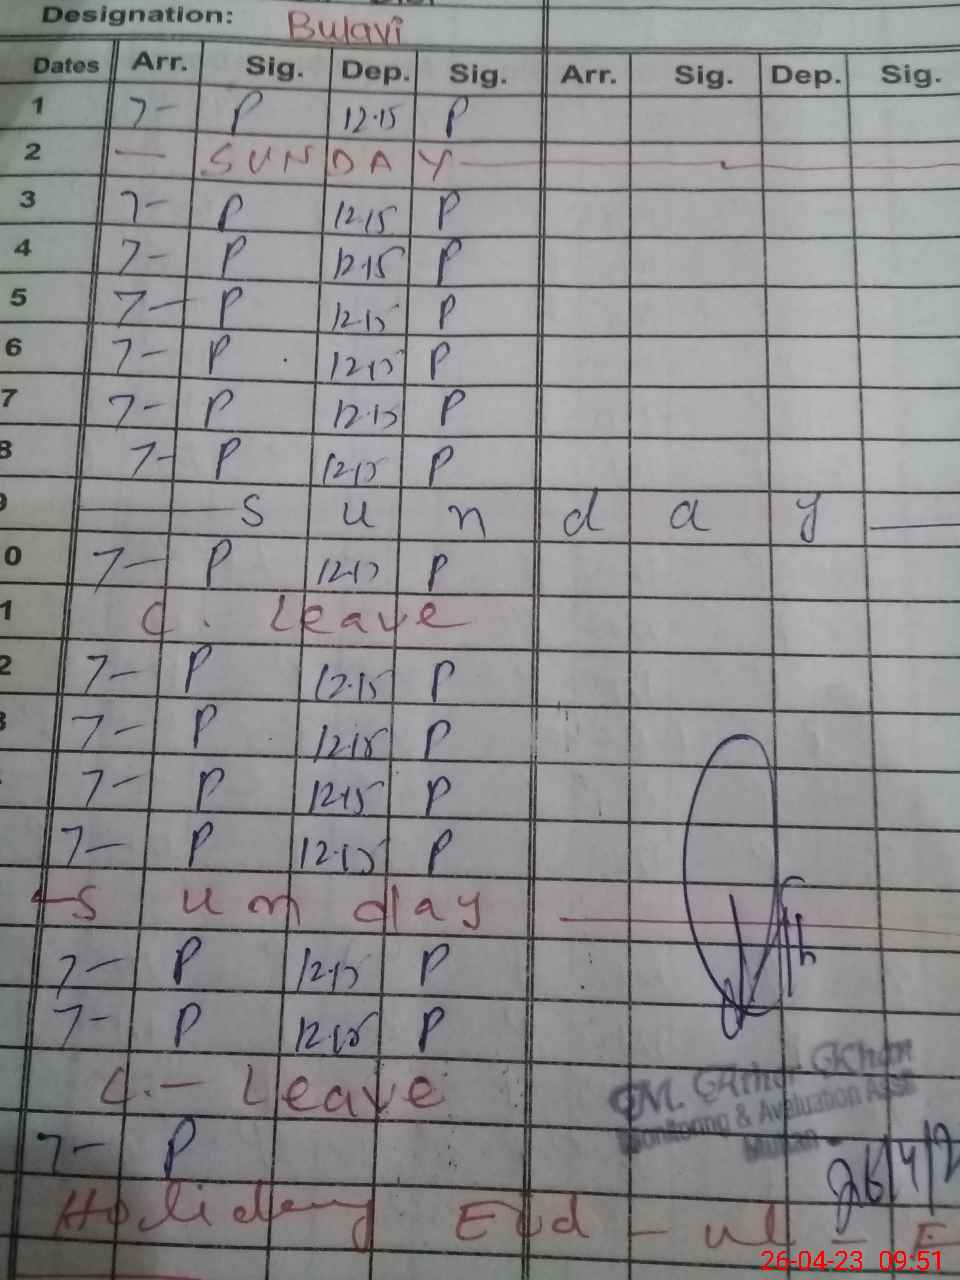 Designation: Bulavi
Dates Arr. Sig. Dep. Sig. Arr. Sig. Dep. Sig.
1 7- P 12.15 P
2 — SUNDAY —
3 7- P 12.15 P
4 7- P 12.15 P
5 7- P 12.15 P
6 7- P 12.15 P
7 7- P 12.15 P
8 7- P 12.15 P
9 — Sunday —
0 7- P 12.15 P
1 C. Leave
2 7- P 12.15 P
3 7- P 12.15 P
7- P 12.15 P
7- P 12.15 P
Sunday —
7- P 12.15 P
7- P 12.15 P
C. - Leave
M. Khan
7- P
Monitoring & Avaluation Asstt
26/4/2
Holiday Eid - ul - F
26-04-23 09:51